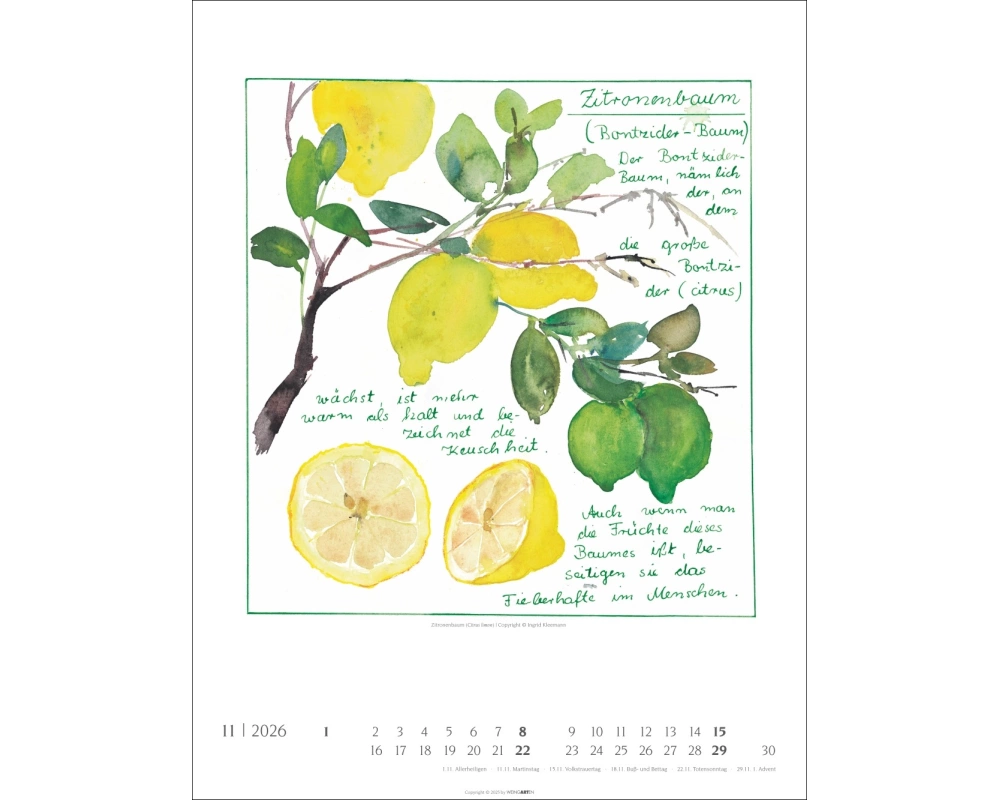 Zitronenbaum
(Bontzider-Baum)
Der Bontzider-
Baum, nämlich
der, an
dem
die große
Bontzi-
der (citrus)
wächst, ist mehr
warm als kalt und be-
zeichnet die
Keuschheit.
Auch wenn man
die Früchte dieses
Baumes ißt, be-
seitigen sie das
Fieberhafte im Menschen.
Zitronenbaum (Citrus limon) | Copyright © Ingrid Kleemann
11 | 2026 1 2 3 4 5 6 7 8 9 10 11 12 13 14 15
16 17 18 19 20 21 22 23 24 25 26 27 28 29 30
1.11. Allerheiligen · 11.11. Martinstag · 15.11. Volkstrauertag · 18.11. Buß- und Bettag · 22.11. Totensonntag · 29.11. 1. Advent
Copyright © 2025 by WEINGARTEN